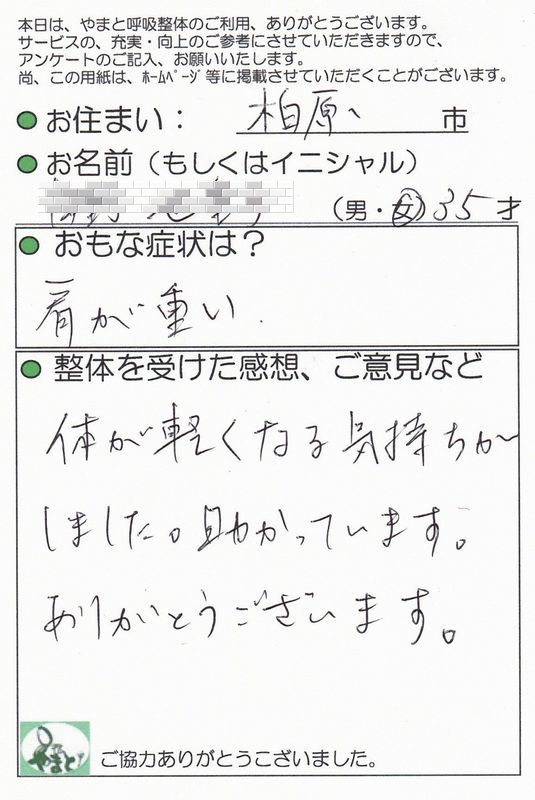 本日は、やまと呼吸整体のご利用、ありがとうございます。
サービスの、充実・向上のご参考にさせていただきますので、
アンケートのご記入、お願いいたします。
尚、この用紙は、ﾎｰﾑﾍﾟｰｼﾞ等に掲載させていただくことがございます。
●お住まい： 柏原 市
●お名前（もしくはイニシャル）
（男・女）35才
●おもな症状は？
肩が重い．
●整体を受けた感想、ご意見など
体が軽くなる気持ちが
しました。助かっています。
ありがとうございます。
やまと
ご協力ありがとうこざいました。